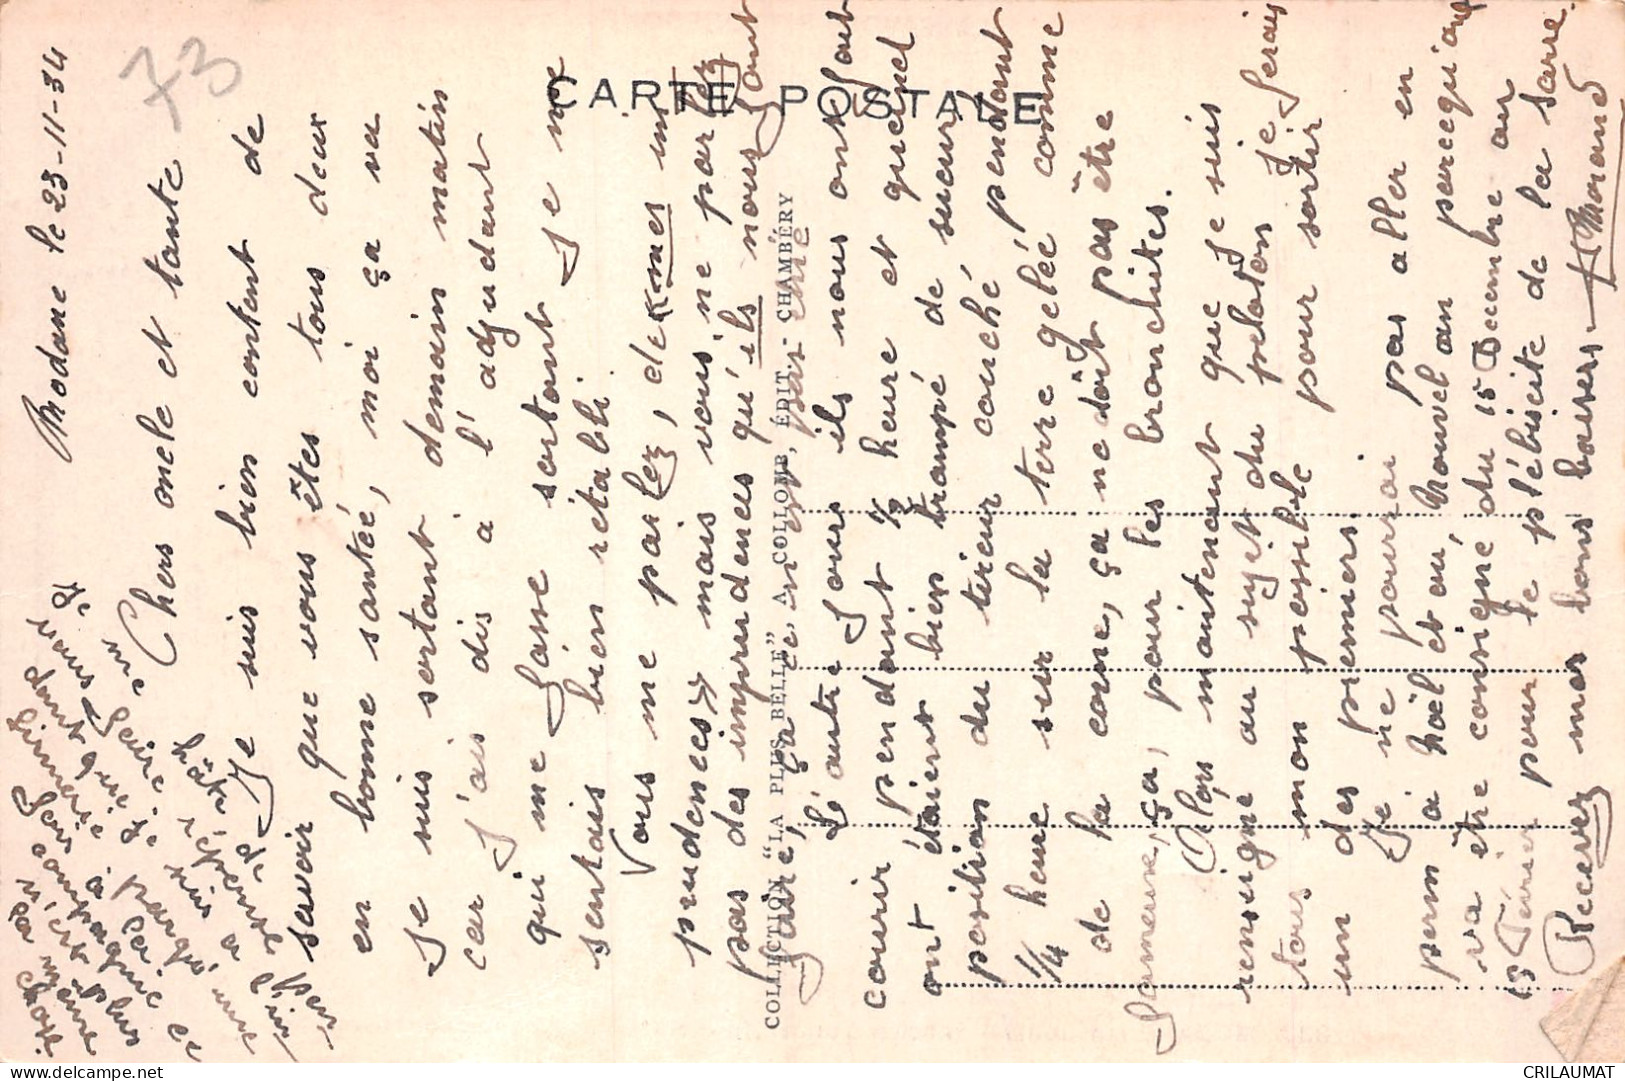 73
CARTE POSTALE
COLLECTION "LA PLUS BELLE" A. COLLOMB, ÉDIT. CHAMBÉRY
Modane le 23-11-34
Chers oncle et tante
Je suis bien content de
savoir que vous êtes tous deux
en bonne santée, moi ça va
Je suis sortant demain matin
car J'ais dis à l'adjudant
qui me fasse sortant Je me
sentais bien rétabli.
Vous me parlez, de «mes im
prudences» mais vous ne parlez
pas des imprudences qu'ils nous font
faire, ça, c'est pas
L'autre Jours ils nous ont fait
courir pendant 1/2 heure et quand
ont étaient bien trampé de sueur
position du tireur couché, pendant
1/4 heure sur la terre gelée comme
de la corne, ça ne doit pas être
fameux, ça, pour les bronchites.
Alors maintenant que je suis
renseigné au sujet du peloton Je ferais
tous mon possible pour sortir
un des premiers.
Je ne pourrai pas aller en
perm à Noël et au Nouvel an parcequ'ont
va être consigné du 15 Décembre au
15 Février pour le plébiscite de la Sarre.
Recevez mes bons baisers.
Morand
Je
vous
me faire hâte
dont que je suis à
firmerie parqu'
fois à la
compagnie
n'est plus
la même
chose